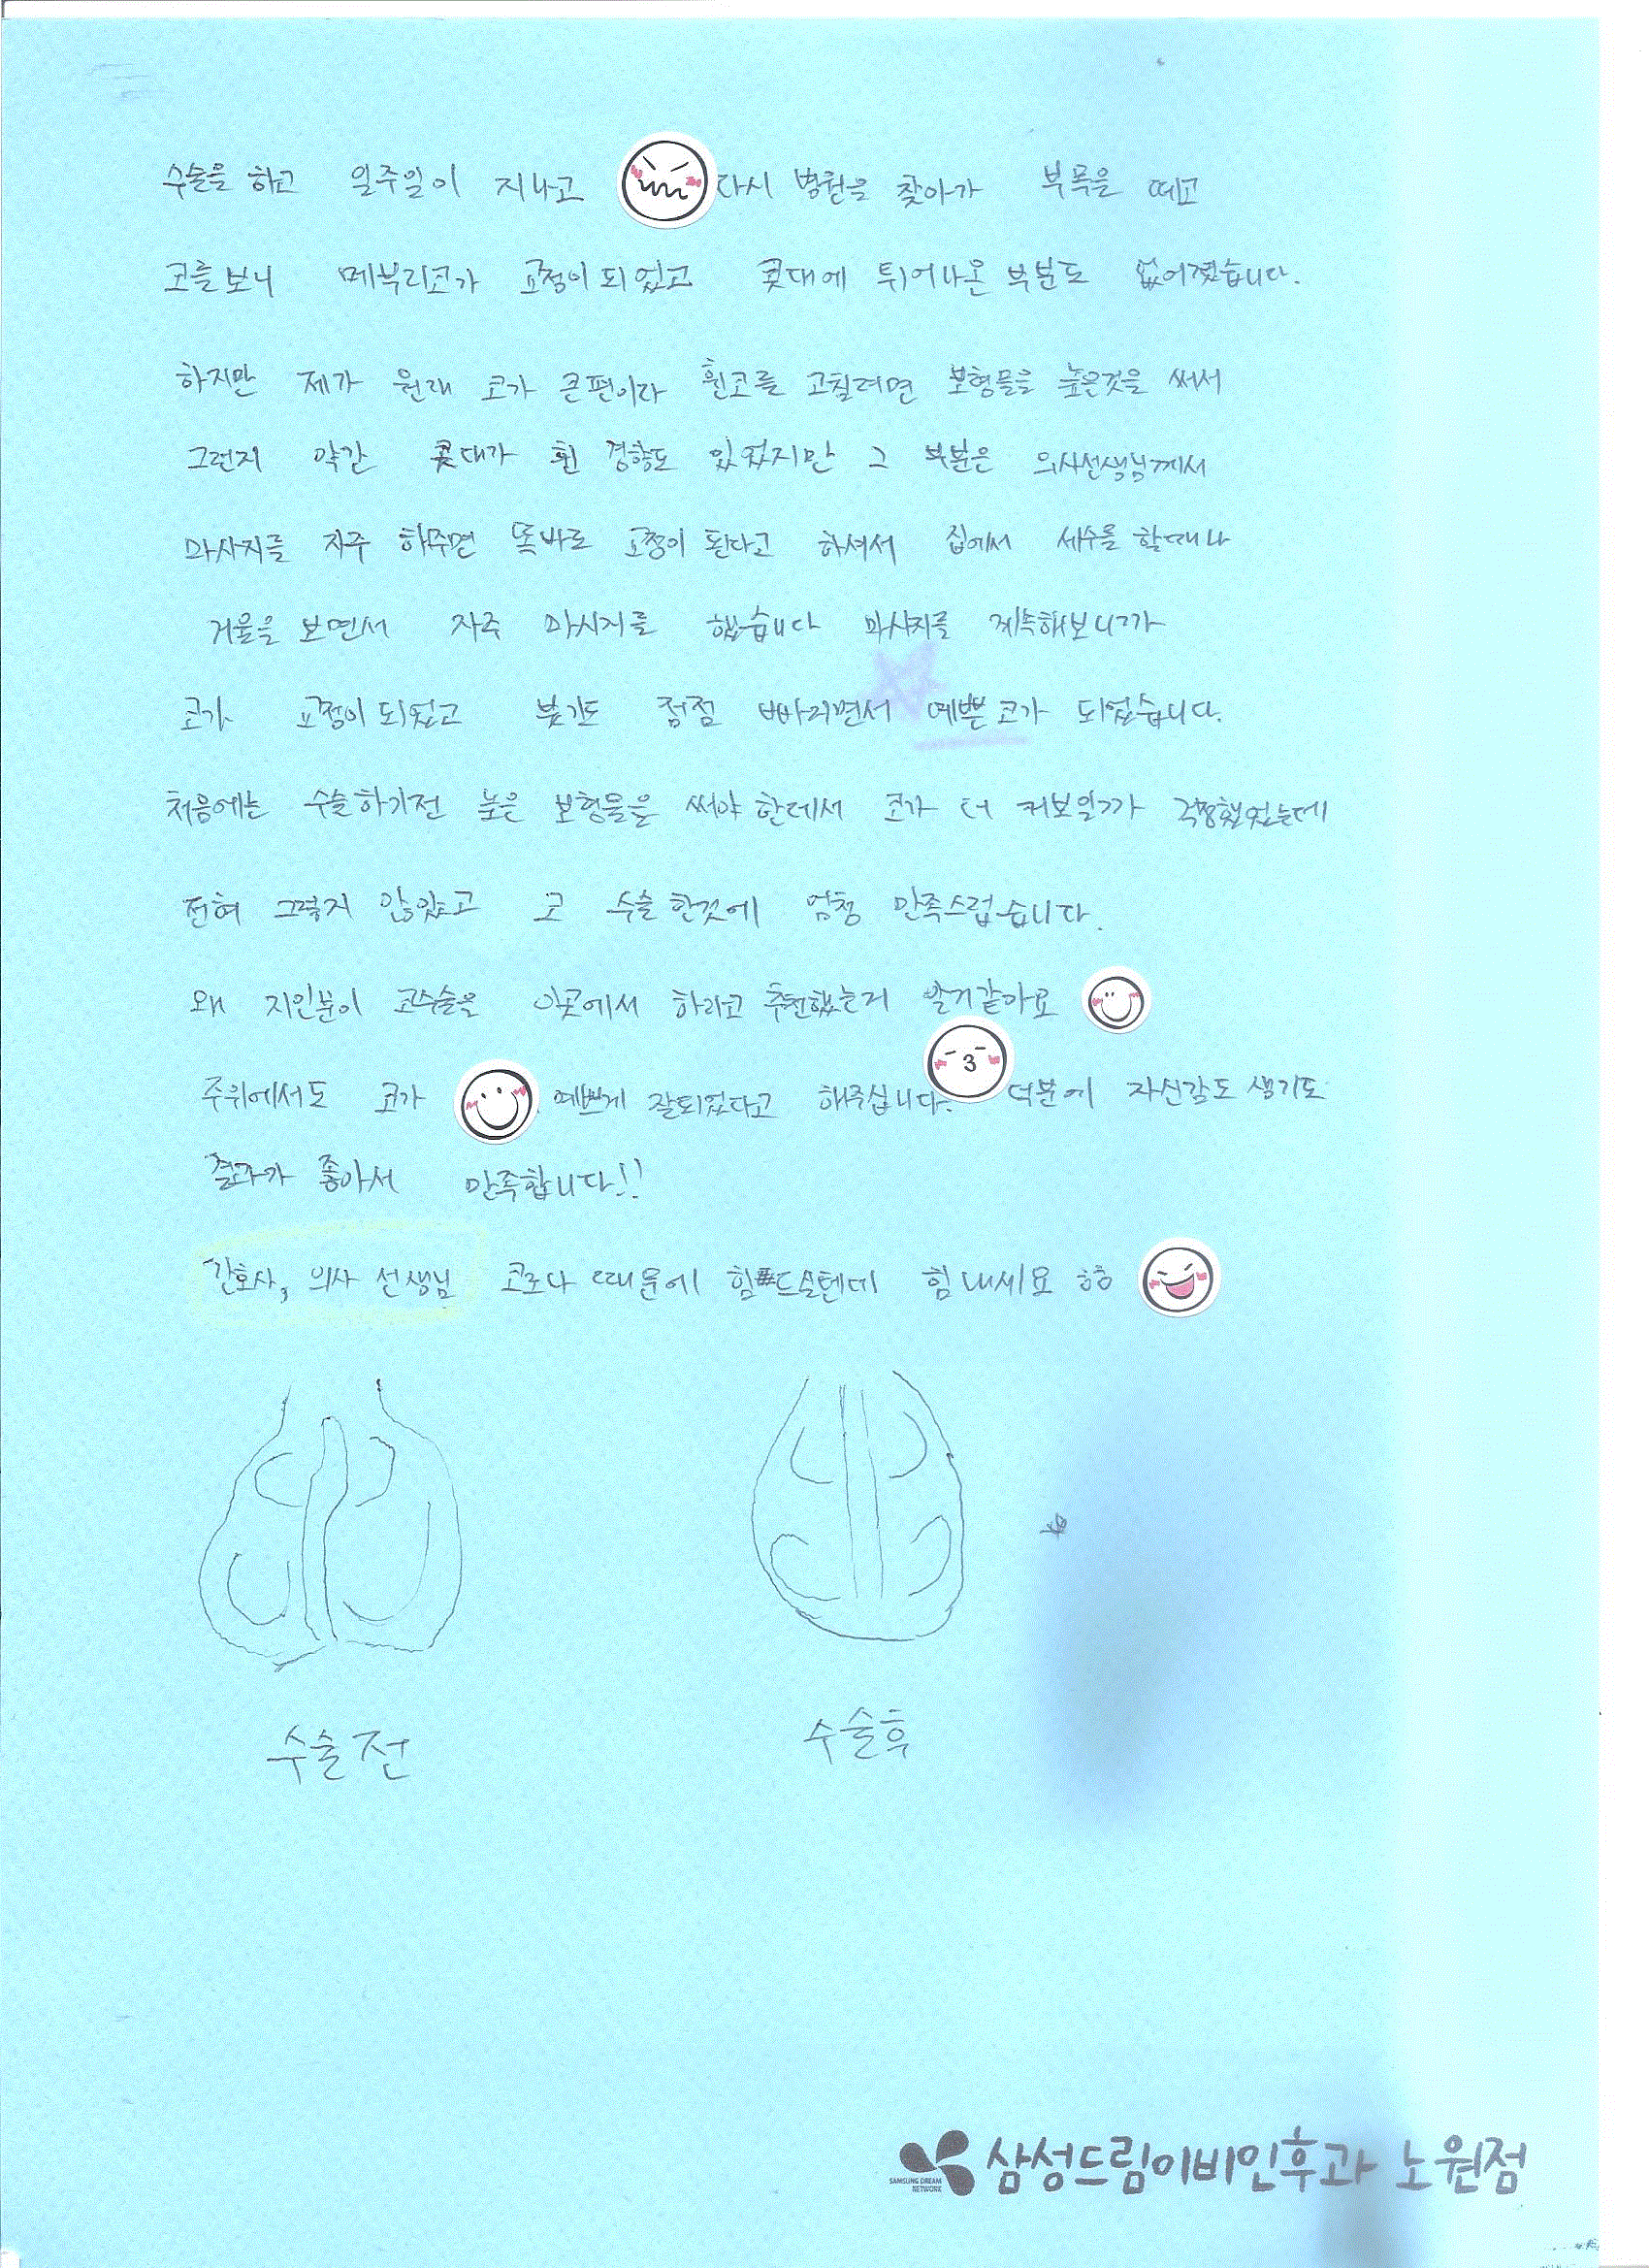 수술을 하고 일주일이 지나고 다시 병원을 찾아가 부목을 떼고
코를보니 메부리코가 교정이 되었고 콧대에 튀어나온 부분도 없어졌습니다.
하지만 제가 원래 코가 큰편이라 휜코를 고칠려면 보형물을 높은것을 써서
그런지 약간 콧대가 휜 경향도 있었지만 그 부분은 의사선생님께서
마사지를 자주 해주면 똑바로 교정이 된다고 하셔서 집에서 세수를 할때나
거울을 보면서 자주 마사지를 했습니다 마사지를 계속해보니까
코가 교정이 되었고 붓기도 점점 빠지면서 예쁜 코가 되었습니다.
처음에는 수술하기전 높은 보형물을 써야 한데서 코가 더 커보일까 걱정했었는데
전혀 그렇지 않았고 코 수술 한것에 엄청 만족스럽습니다.
왜 지인분이 코수술을 이곳에서 하라고 추천했는지 알거같아요
주위에서도 코가 예쁘게 잘되었다고 해주십니다. 덕분에 자신감도 생기도
결과가 좋아서 만족합니다!!
간호사, 의사 선생님 코로나 때문에 힘드실텐데 힘내세요 ㅎㅎ
수술전 수술후
삼성드림이비인후과 노원점
SAMSUNG DREAM
NETWORK